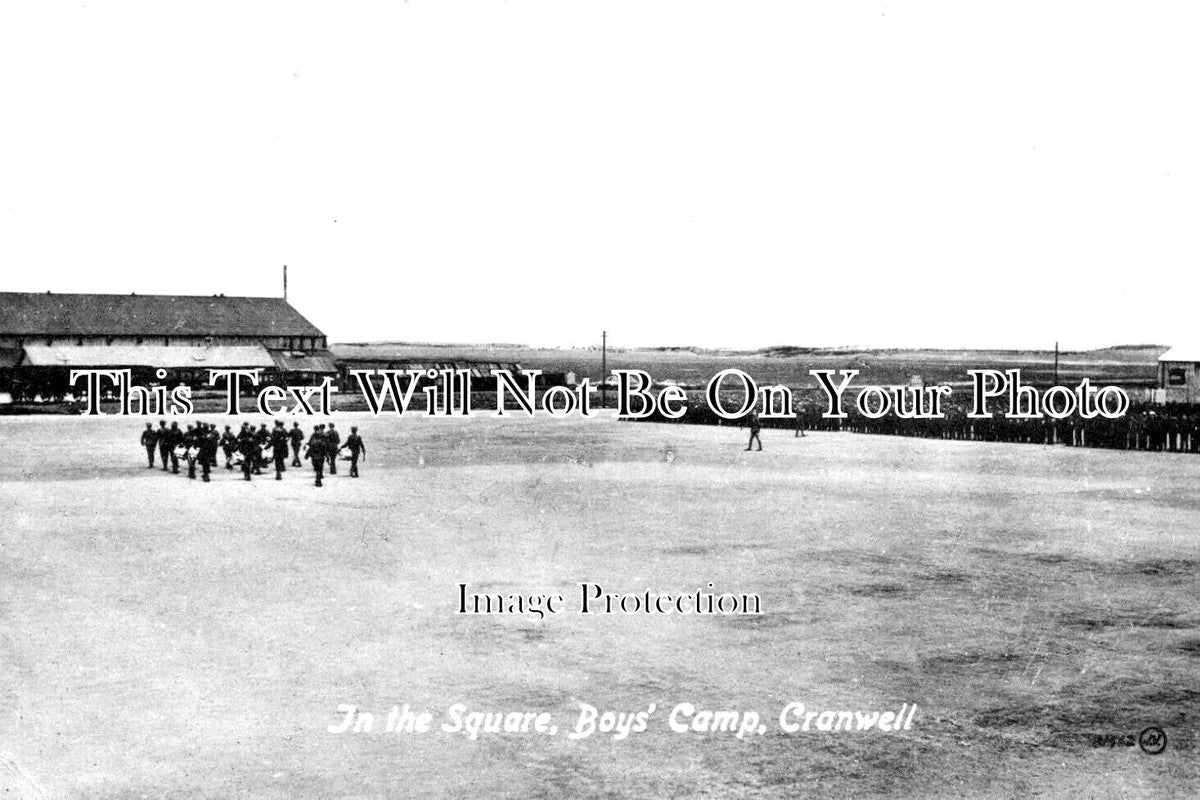 This Text Will Not Be On Your Photo
Image Protection
In the Square, Boys' Camp, Cranwell